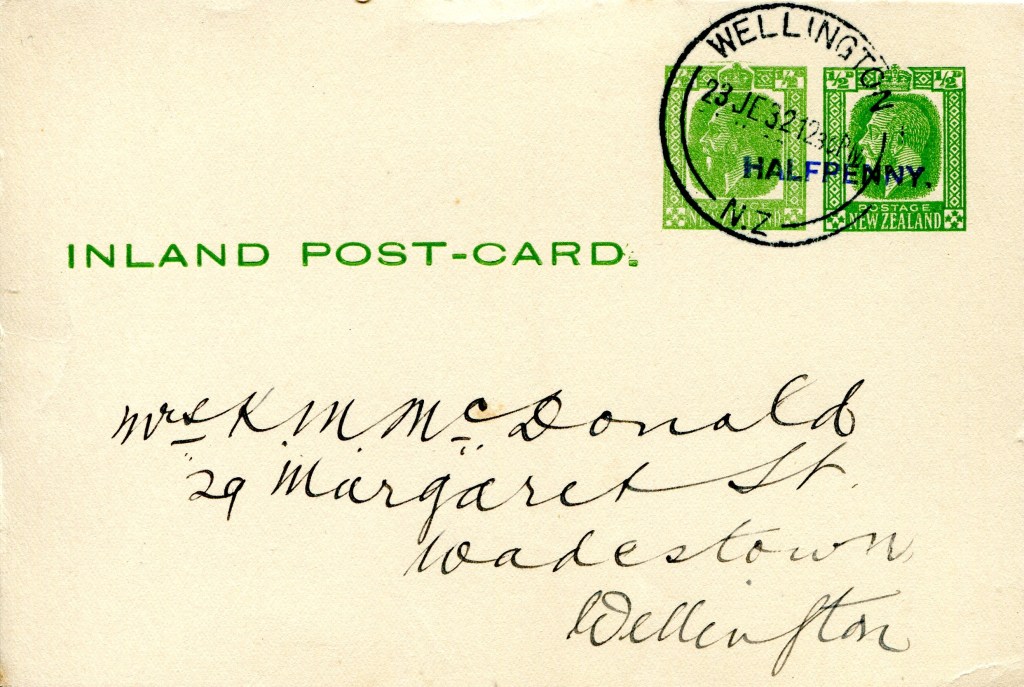 WELLINGTON
23 JE 32 1230PM
N.Z
½ᴰ ½ᴰ
½ᴰ ½ᴰ
HALFPENNY.
POSTAGE
NEW ZEALAND
NEW ZEALAND
INLAND POST-CARD.
Mrs K. M. McDonald
29 Margaret St.
Wadestown
Wellington